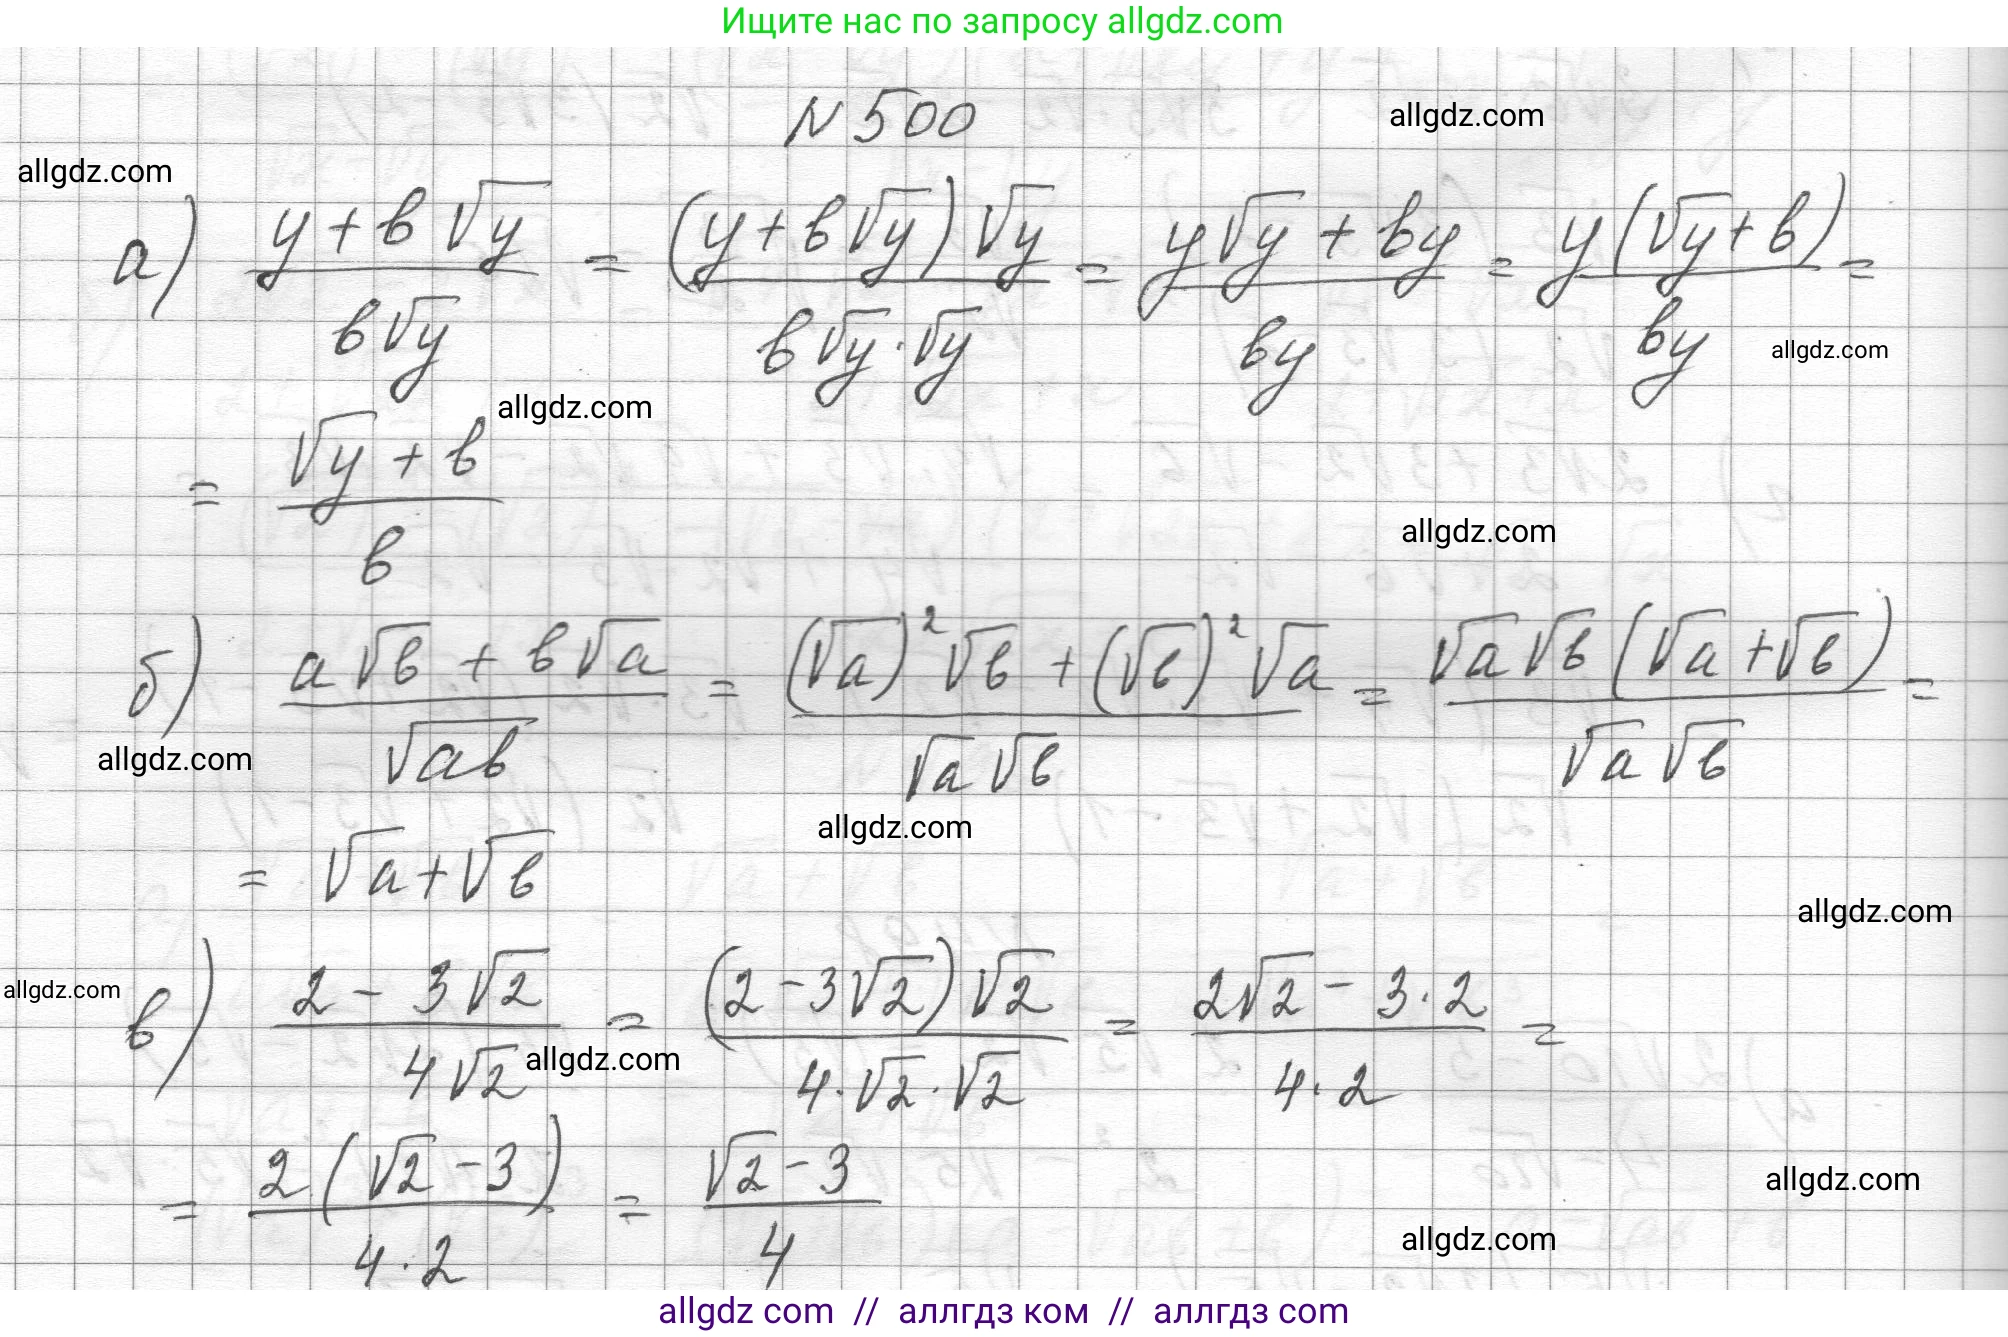 Ищите нас по запросу allgdz.com
N 500
allgdz.com
allgdz.com
а) (y + в√y)/(в√y) = ((y + в√y)√y)/(в√y · √y) = (y√y + вy)/(вy) = (y(√y + в))/(вy) =
allgdz.com
allgdz.com
= (√y + в)/в
allgdz.com
б) (a√в + в√a)/√aв = ((√a)²√в + (√в)²√a)/(√a√в) = (√a√в(√a + √в))/(√a√в) =
allgdz.com
allgdz.com
= √a + √в
allgdz.com
allgdz.com
в) (2 - 3√2)/(4√2) = ((2 - 3√2)√2)/(4 · √2 · √2) = (2√2 - 3 · 2)/(4 · 2) =
allgdz.com
= (2(√2 - 3))/(4 · 2) = (√2 - 3)/4
allgdz.com
allgdz.com
allgdz com // аллгдз ком // аллгдз com